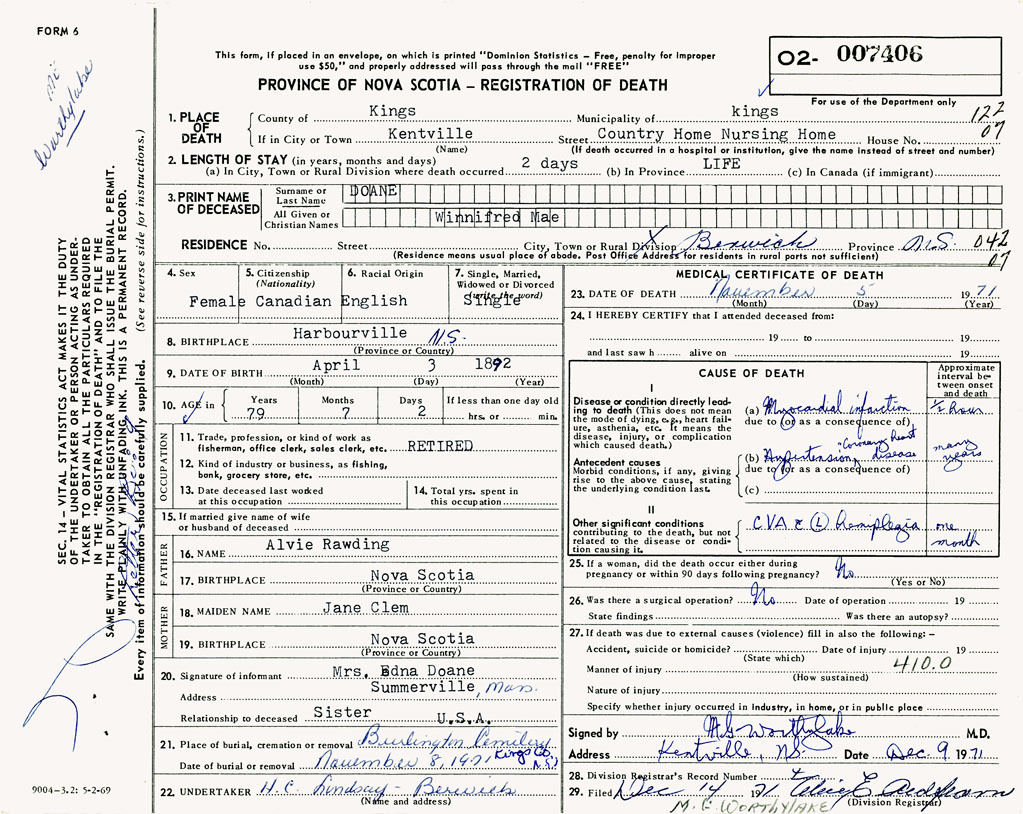 FORM 6
Worthylake
This form, if placed in an envelope, on which is printed "Dominion Statistics – Free, penalty for improper
use $50," and properly addressed will pass through the mail "FREE"
PROVINCE OF NOVA SCOTIA – REGISTRATION OF DEATH
O2- 007406
For use of the Department only
122
07
1. PLACE OF DEATH
County of Kings Municipality of kings
If in City or Town Kentville Street Country Home Nursing Home House No.
(Name) (If death occurred in a hospital or institution, give the name instead of street and number)
2. LENGTH OF STAY (in years, months and days)
(a) In City, Town or Rural Division where death occurred 2 days (b) In Province LIFE (c) In Canada (if immigrant)
3. PRINT NAME OF DECEASED
Surname or Last Name DOANE
All Given or Christian Names Winnifred Mae
RESIDENCE No. Street City, Town or Rural Division Berwick Province N.S. 042
07
(Residence means usual place of abode. Post Office Address for residents in rural parts not sufficient)
4. Sex Female
5. Citizenship (Nationality) Canadian
6. Racial Origin English
7. Single, Married, Widowed or Divorced (write the word) Single
8. BIRTHPLACE Harbourville N.S.
(Province or Country)
9. DATE OF BIRTH April 3 1892
(Month) (Day) (Year)
10. AGE in Years 79 Months 7 Days 2 If less than one day old hrs. or min.
OCCUPATION
11. Trade, profession, or kind of work as
fisherman, office clerk, sales clerk, etc. RETIRED
12. Kind of industry or business, as fishing,
bank, grocery store, etc.
13. Date deceased last worked
at this occupation
14. Total yrs. spent in
this occupation
15. If married give name of wife
or husband of deceased
FATHER
16. NAME Alvie Rawding
17. BIRTHPLACE Nova Scotia
(Province or Country)
MOTHER
18. MAIDEN NAME Jane Clem
19. BIRTHPLACE Nova Scotia
(Province or Country)
20. Signature of informant Mrs. Edna Doane
Address Summerville, Mass.
Relationship to deceased Sister U.S.A.
21. Place of burial, cremation or removal Burlington Cemetery
Kings Co. N.S.
Date of burial or removal November 8, 1971
22. UNDERTAKER H.C. Lindsay - Berwick
(Name and address)
MEDICAL CERTIFICATE OF DEATH
23. DATE OF DEATH November 5 1971
(Month) (Day) (Year)
24. I HEREBY CERTIFY that I attended deceased from:
19 to 19
and last saw h alive on 19
CAUSE OF DEATH
Approximate interval between onset and death
I
Disease or condition directly leading to death (This does not mean the mode of dying, e.g., heart failure, asthenia, etc. It means the disease, injury, or complication which caused death.)
(a) Myocardial infarction 1/2 hour
due to (or as a consequence of)
Antecedent causes
Morbid conditions, if any, giving rise to the above cause, stating the underlying condition last.
"Coronary heart
(b) Hypertension, disease many years
due to (or as a consequence of)
(c)
II
Other significant conditions
contributing to the death, but not related to the disease or condition causing it.
CVA c (L) hemiplegia one month
25. If a woman, did the death occur either during
pregnancy or within 90 days following pregnancy? No
(Yes or No)
26. Was there a surgical operation? No Date of operation 19
State findings Was there an autopsy?
27. If death was due to external causes (violence) fill in also the following: –
Accident, suicide or homicide? Date of injury 19
(State which)
410.0
Manner of injury
(How sustained)
Nature of injury
Specify whether injury occurred in industry, in home, or in public place
Signed by M G Worthylake M.D.
Address Kentville, NS Date Dec. 9 1971
28. Division Registrar's Record Number
29. Filed Dec 14 1971
(Division Registrar)
M. G. WORTHYLAKE
SEC. 14 – VITAL STATISTICS ACT MAKES IT THE DUTY
OF THE UNDERTAKER OR PERSON ACTING AS UNDER-
TAKER TO OBTAIN ALL THE PARTICULARS REQUIRED
IN THE "REGISTRATION OF DEATH" AND TO FILE THE
SAME WITH THE DIVISION REGISTRAR WHO SHALL ISSUE THE BURIAL PERMIT.
WRITE PLAINLY WITH UNFADING INK. THIS IS A PERMANENT RECORD.
Every item of information should be carefully supplied. (See reverse side for instructions.)
9004–3.2: 5-2-69